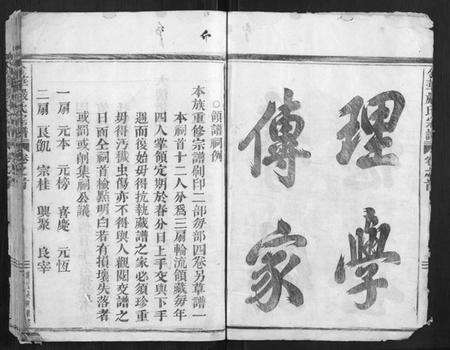 理學
傳家
○領譜祠例
本族重修宗譜刷印二部每部四卷另草譜一
本祠首十二人分爲三扇輪流領藏每年
四人掌領定期於春分日上手交與下手
週而復始毋得抗執藏譜之家必須珍重
毋得污穢虫傷亦不得與人觀閱交譜之
日面全祠首檢點明白若有損壞失落者
或罰或削集祠公議
一扇 元本 元榜 喜慶 元恆
二扇 良凱 宗桂 興聚 良宰